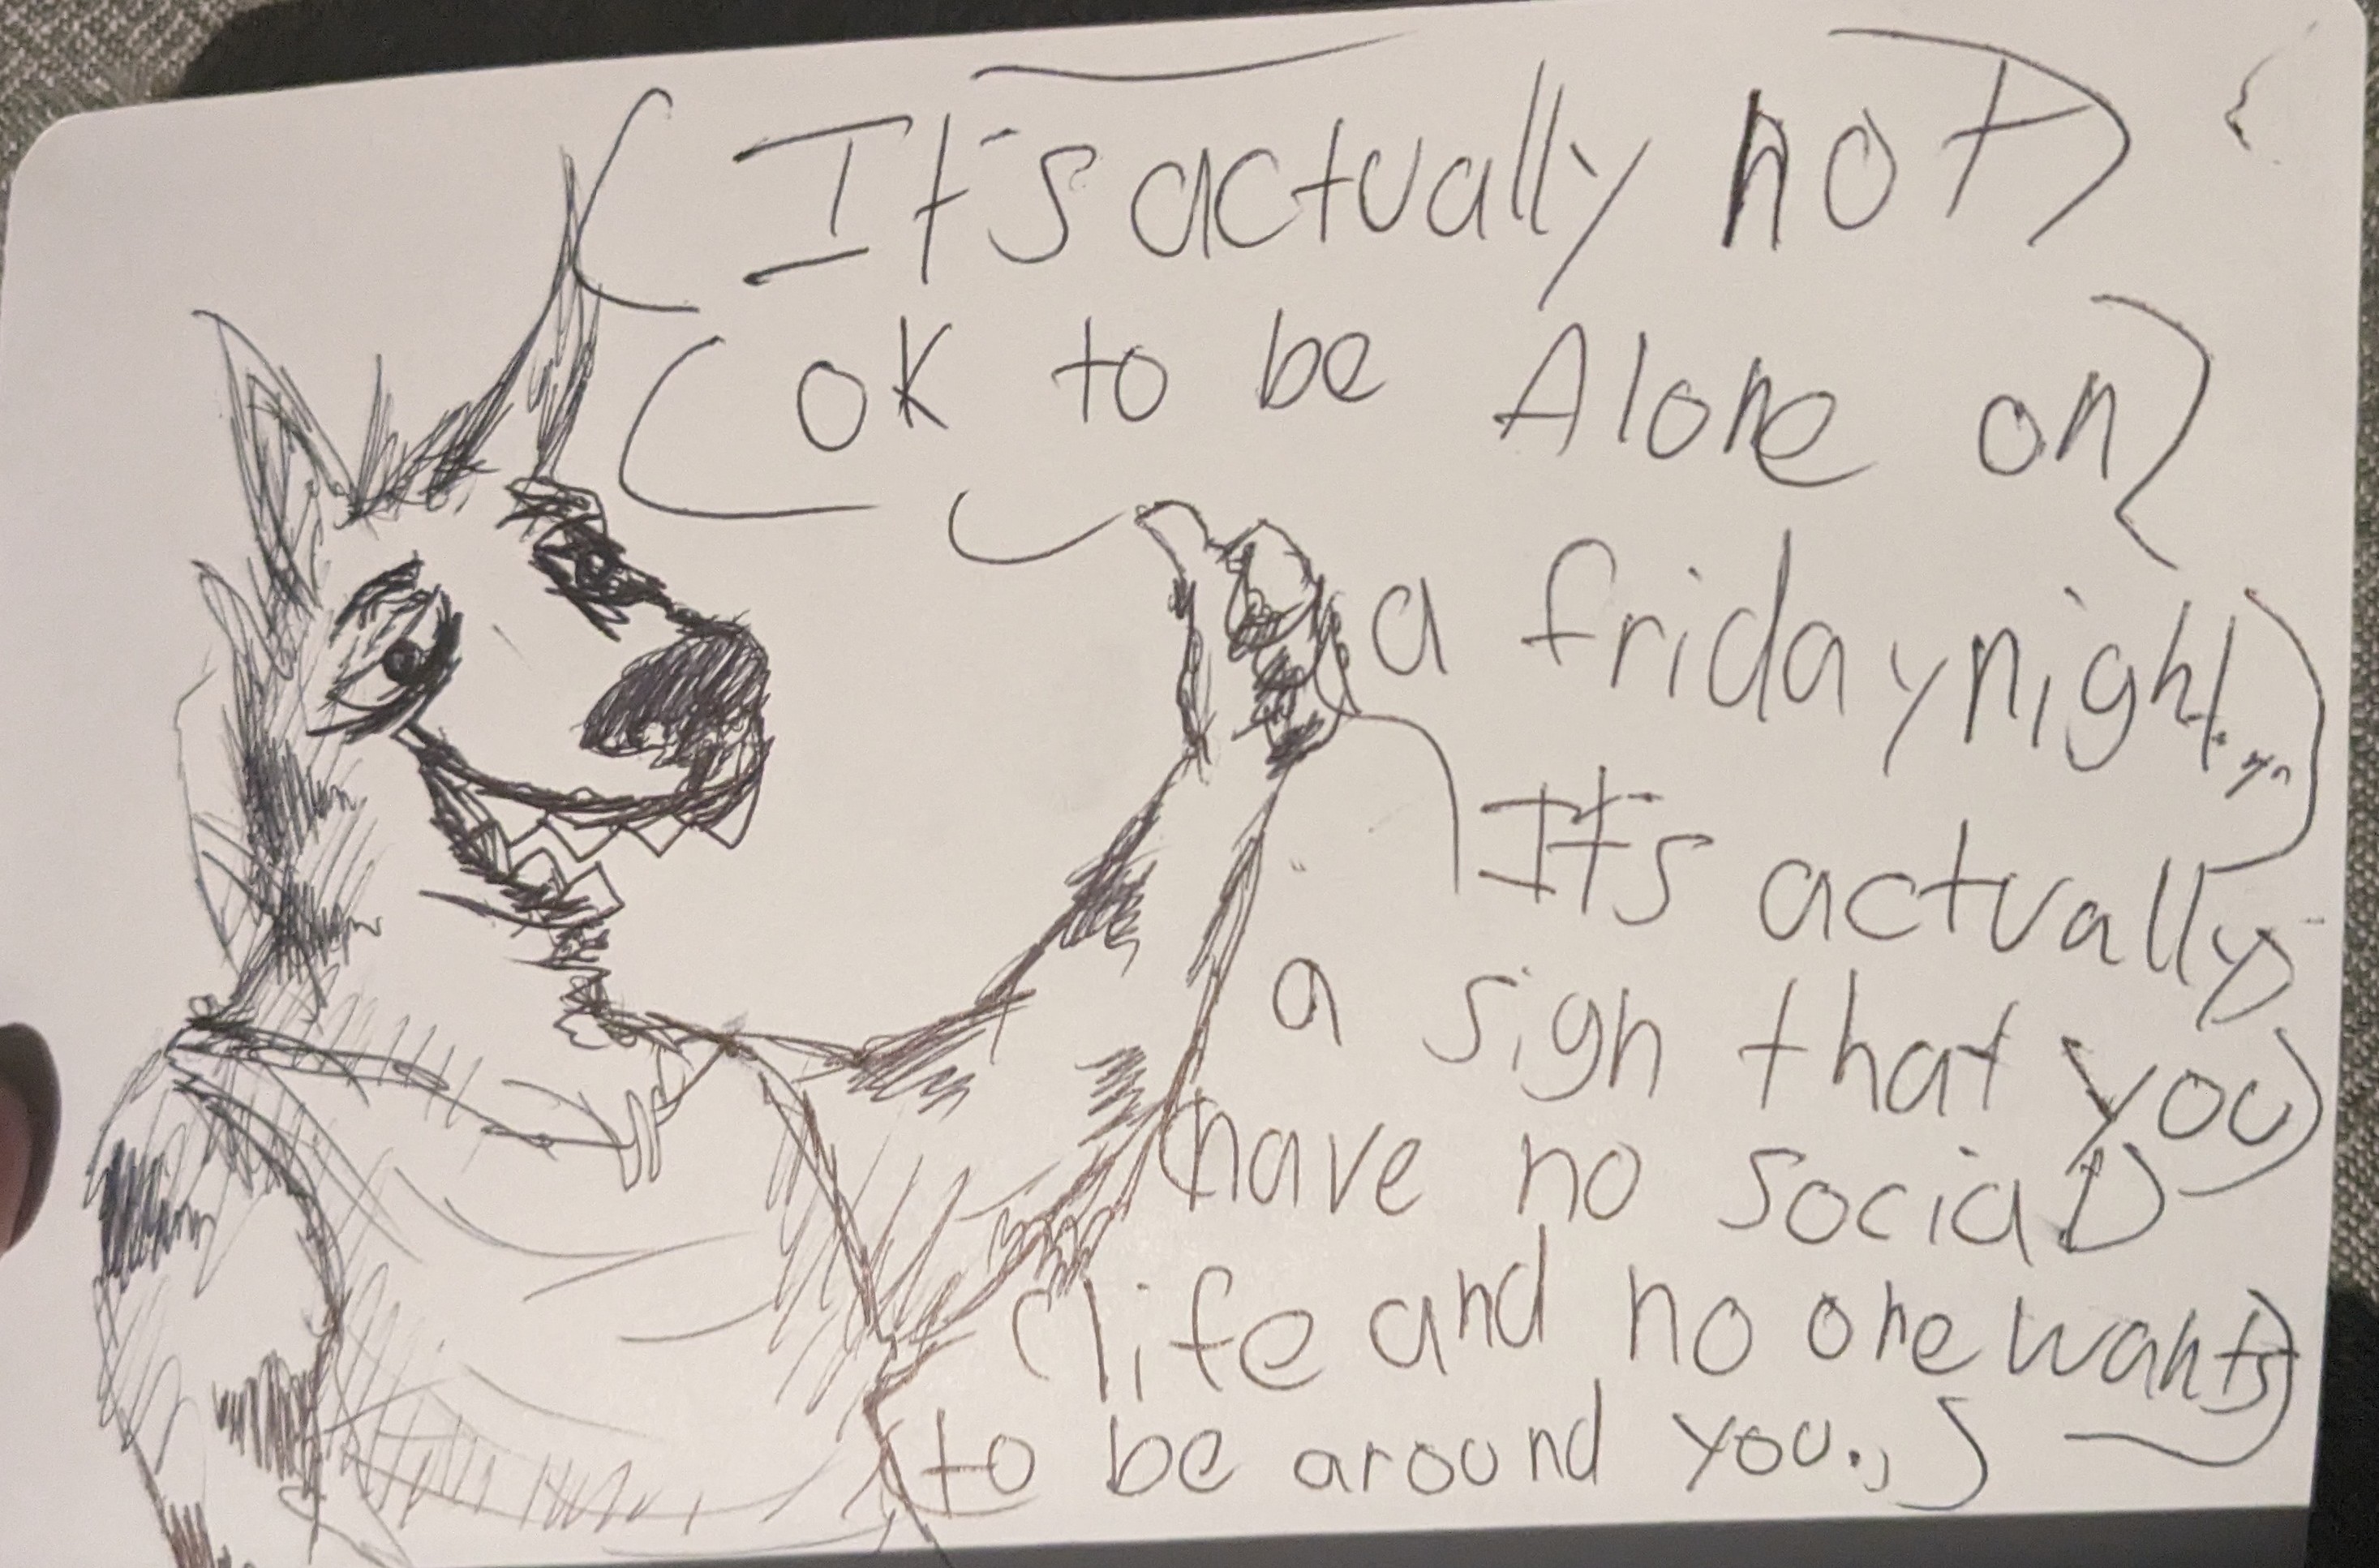 It's actually not
ok to be Alone on
a friday night...
It's actually
a sign that you
have no social
life and no one wants
to be around you..